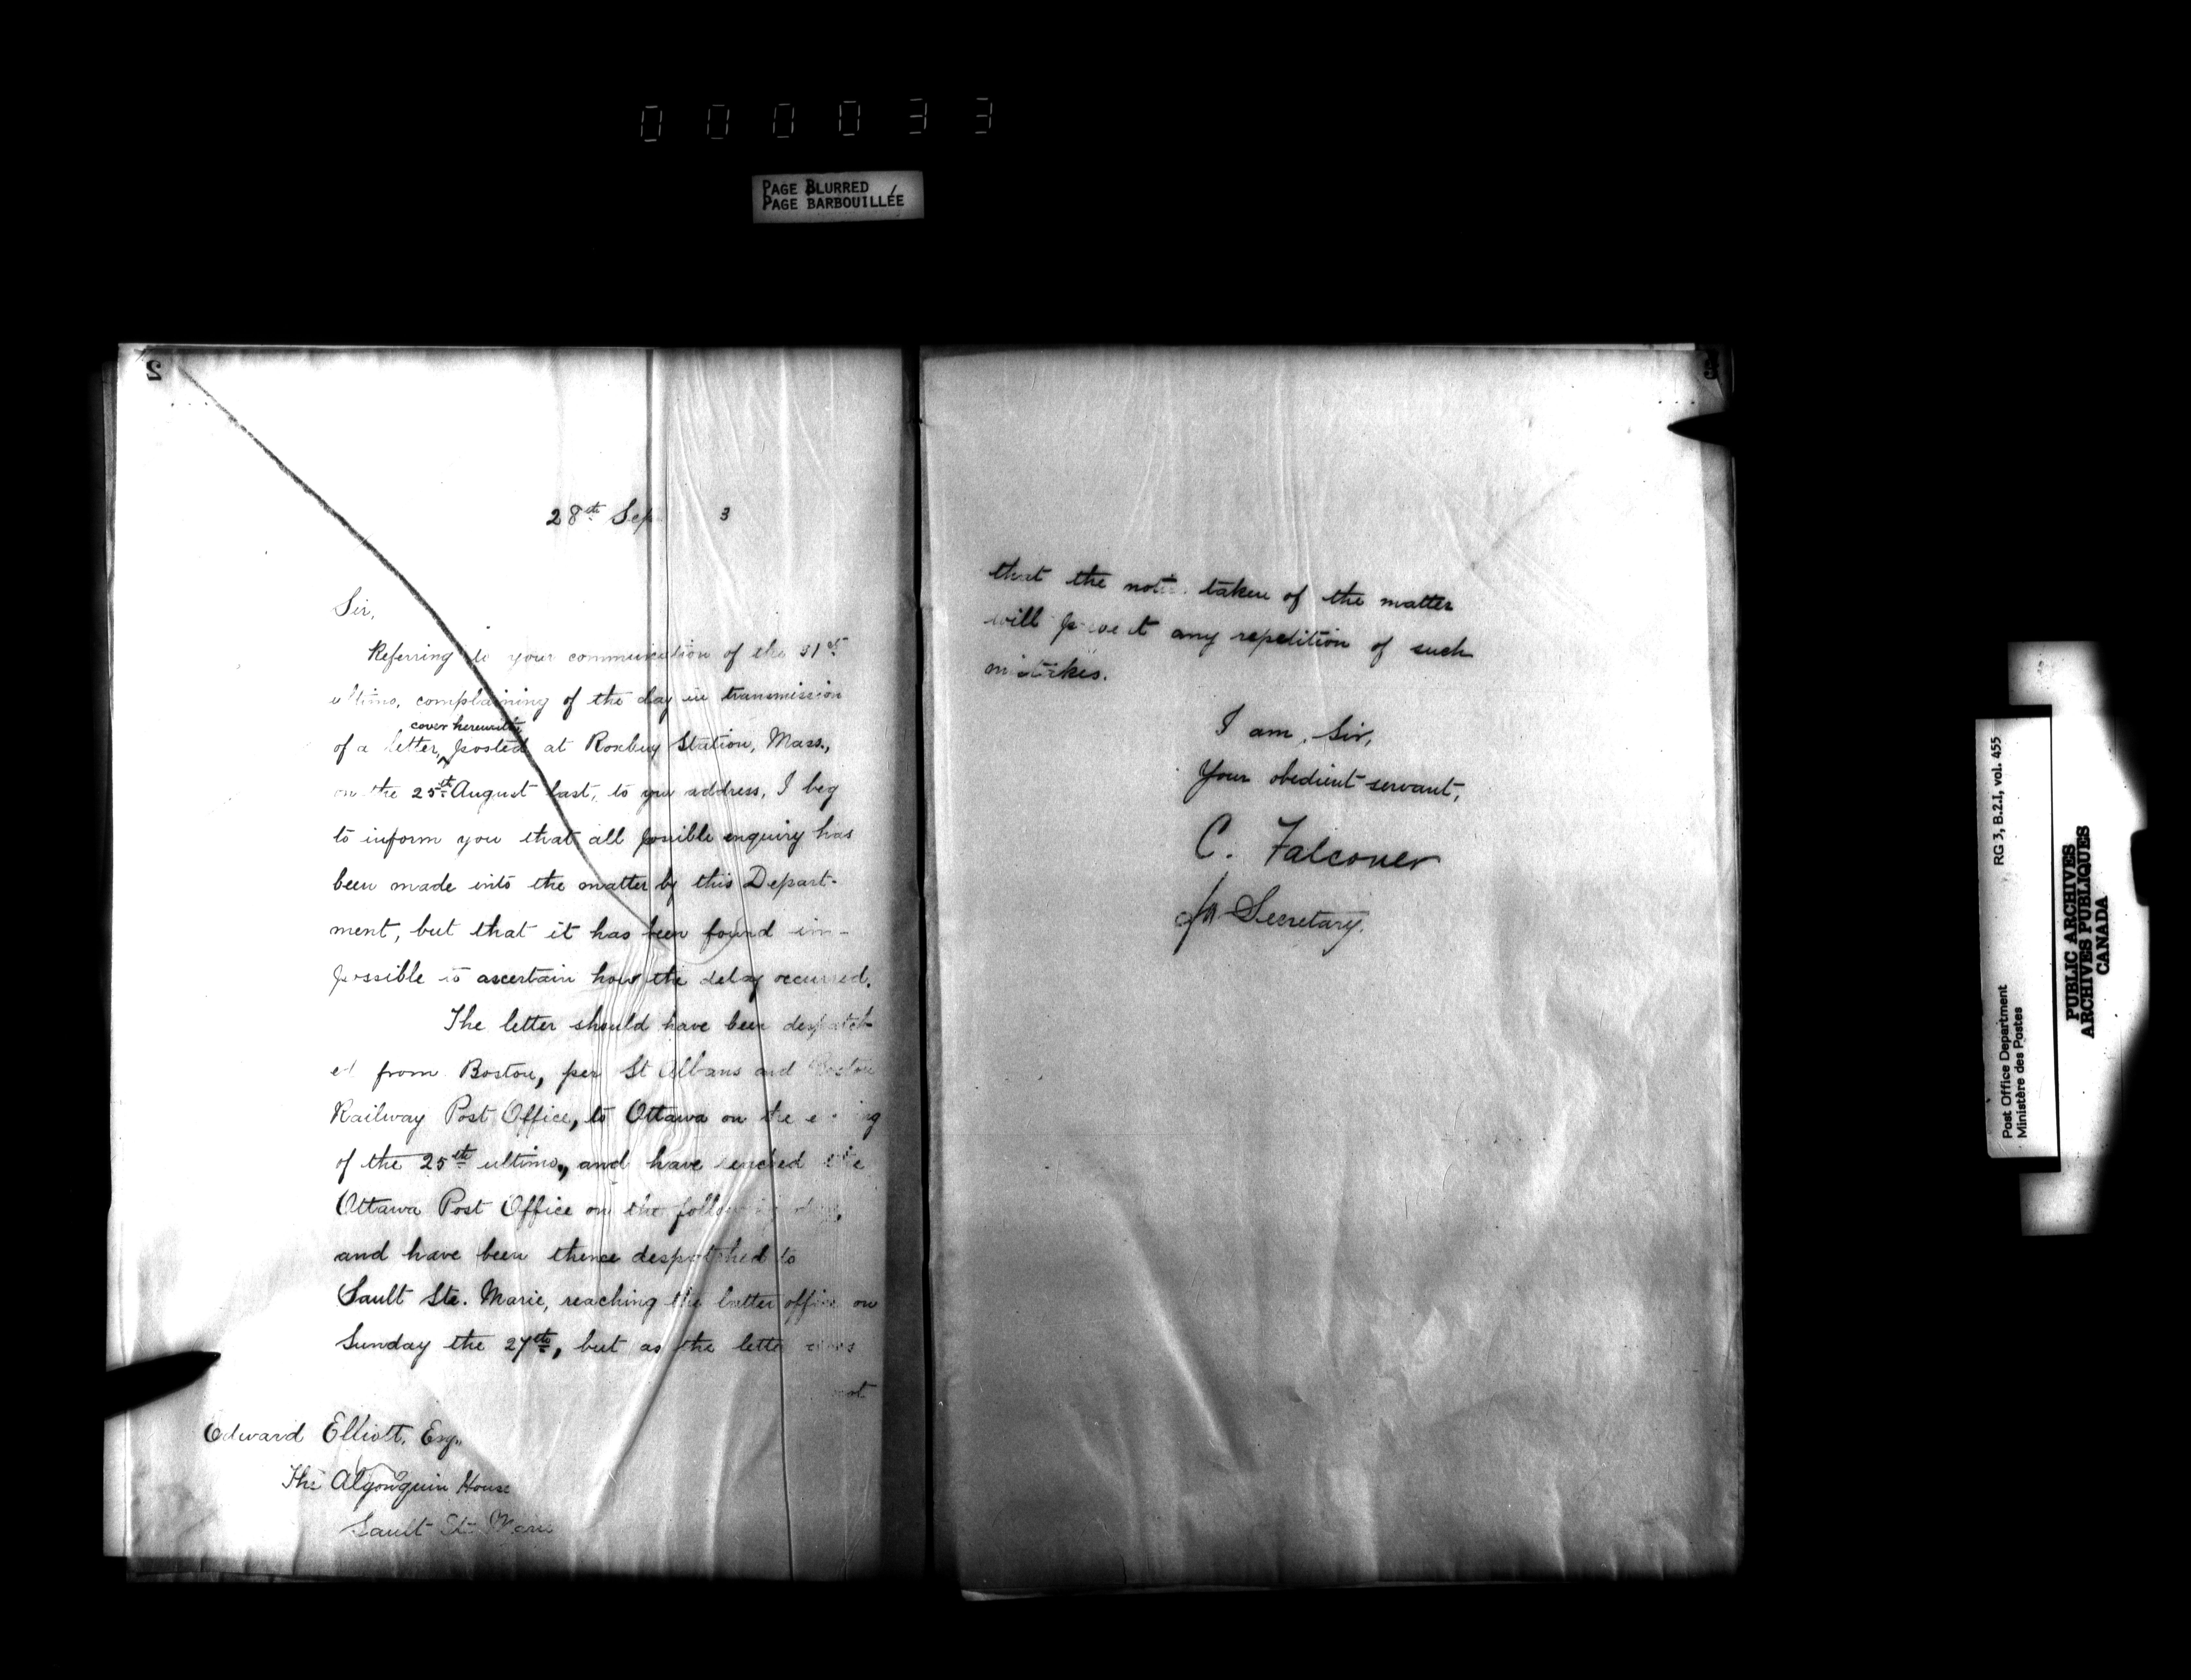 000033
PAGE BLURRED
PAGE BARBOUILLÉE
2
28th Sep 3
Sir,
Referring to your communication of the 31st
ultimo, complaining of the dlay in transmission
cover herewith
of a letter, posted at Roxbury Station, Mass.,
on the 25th August last, to your address, I beg
to inform you that all possible enquiry has
been made into the matter by this Depart-
ment, but that it has been found im-
possible to ascertain how the delay occurred.
The letter should have been despatch
ed from Boston, per St Albans and Boston
Railway Post Office, to Ottawa on the
of the 25th ultimo, and have reached the
Ottawa Post Office on the following day,
and have been thence despatched to
Sault Ste. Marie, reaching the latter office on
Sunday the 27th, but as the letter
not
Edward Elliott, Esq.,
The Algonquin House
Sault Ste Marie
3
that the notice taken of the matter
will prevent any repetition of such
mistakes.
I am, Sir,
Your obedient servant,
C. Falconer
for Secretary.
RG 3, B.2.I, vol. 455
Post Office Department
Ministère des Postes
PUBLIC ARCHIVES
ARCHIVES PUBLIQUES
CANADA